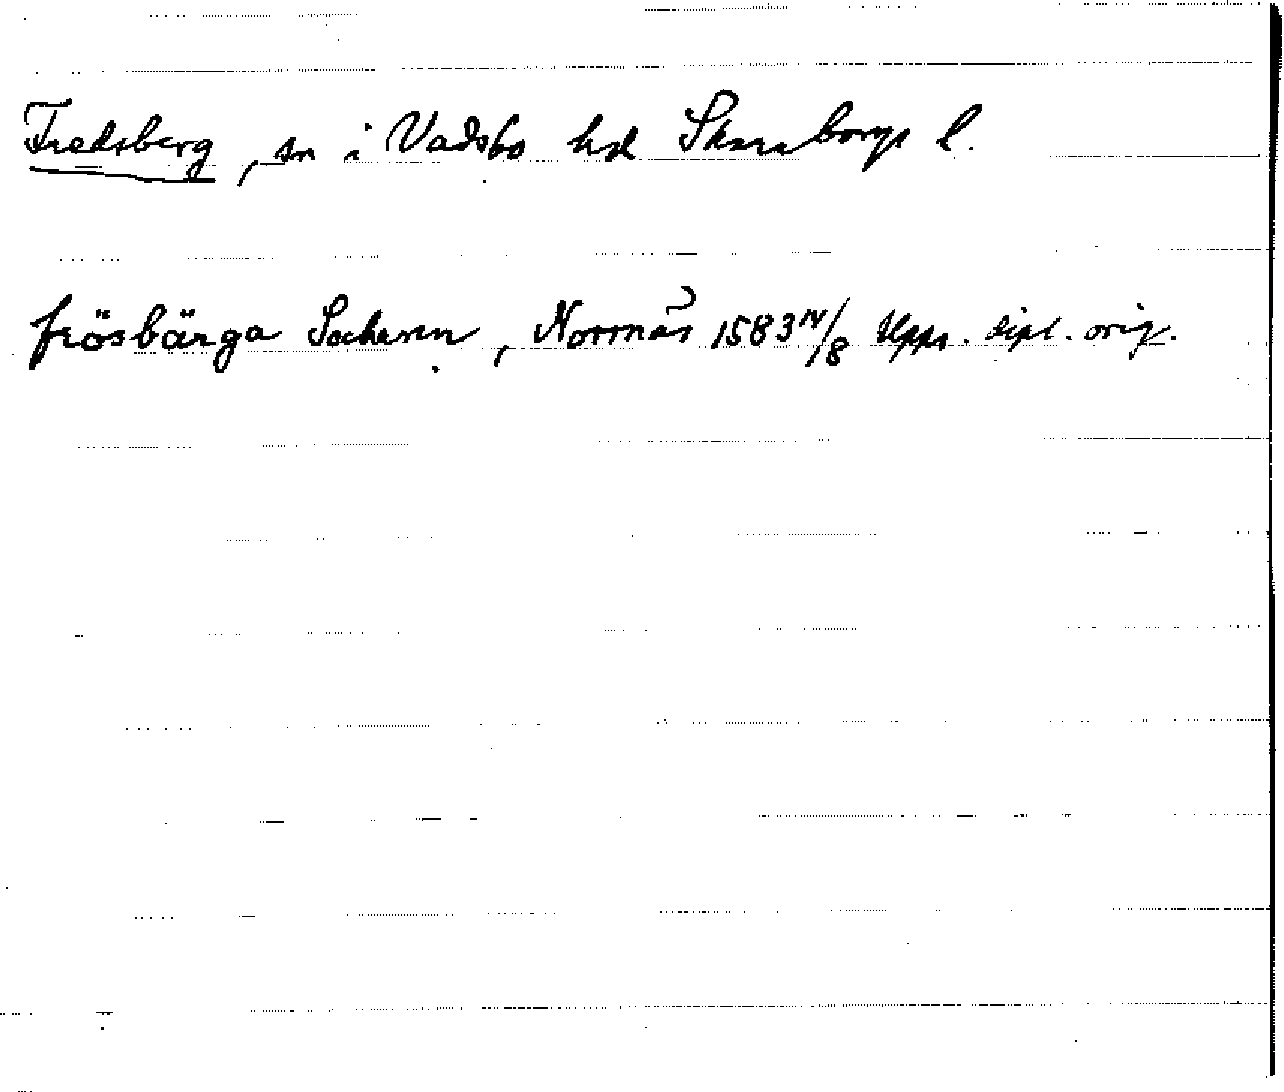 Fredsberg, sn i Vadsbo hd Skaraborgs l.
frösbärga Sochenn, Norrnäs 1583 14/8 Upps. dipl. orig.